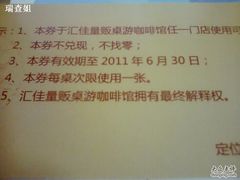 瑞查姐
示：1、本券于汇佳量贩桌游咖啡馆任一门店使用可
2、本券不兑现，不找零；
3、本券有效期至 2011 年 6 月 30 日；
4、本券每桌次限使用一张。
5、汇佳量贩桌游咖啡馆拥有最终解释权。
定位